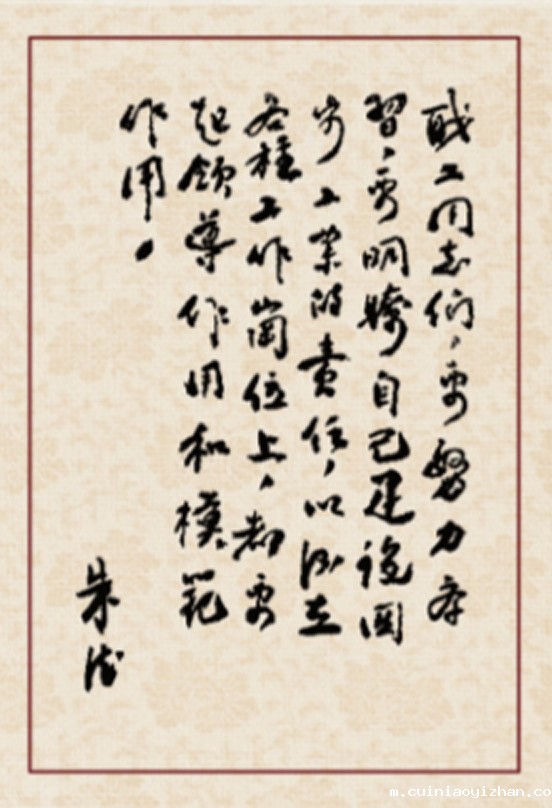 職工同志们，要努力学
習，要明瞭自己建設国
家工業的責任，以便在
各種工作崗位上，都要
起領導作用和模範
作用。
朱德
m.cuiniaoyizhan.co